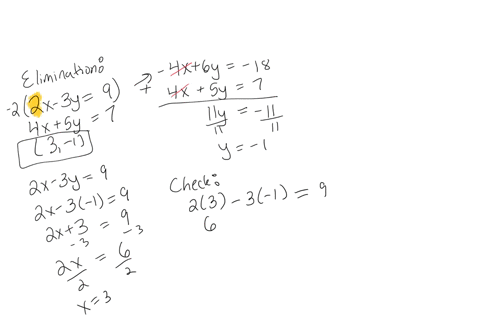 Elimination:
-2(2x-3y = 9)
4x+5y = 7
(3,-1)
2x-3y = 9
2x-3(-1) = 9
2x+3 = 9
-3 -3
2x = 6
2 2
x = 3
-4x+6y = -18
+ 4x + 5y = 7
11y = -11
11 11
y = -1
Check:
2(3) - 3(-1) = 9
6